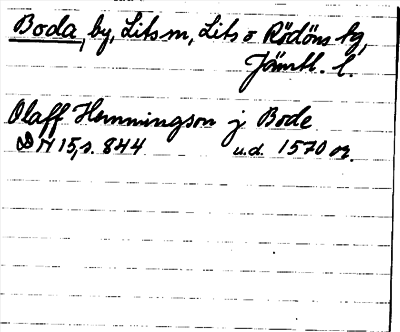 Boda, by, Lits m, Lits o Rödöns tg,
Jämtl. l.
Olaff Hemmingson j Bode
DN 15, s. 844 u.d. 1570 or.